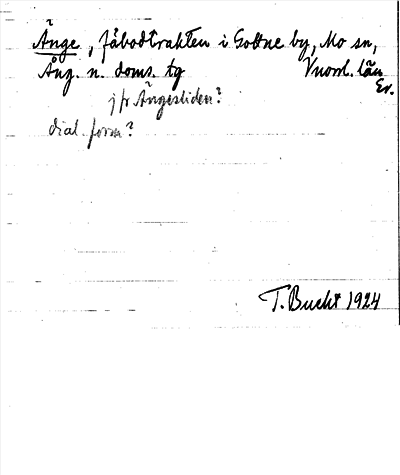 Änge, fäbodtrakten i Gottne by, Mo sn,
Ång. n. doms. tg Vnorrl. län
Ev.
jfr Ängesliden?
dial. form?
T. Bucht 1924